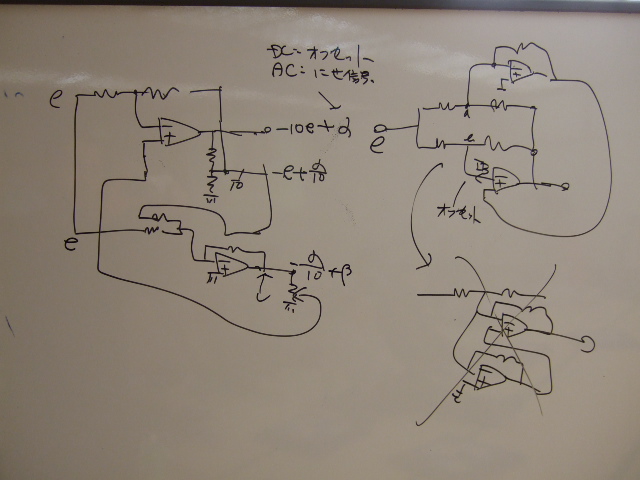 DC=オフセット
AC=にせ信号
e
-10e+α
-e+α/10
1/10
e
α/10+β
e
オフセット